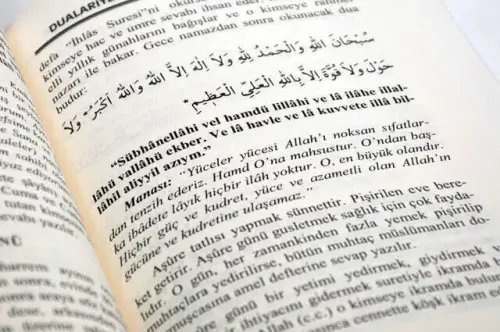 DUALARIY
defa "İhlâs Suresi"ni okursa
kimseye hac ve umre sevabı ihsan eder.
elli yıllık günahlarını bağışlar ve o kimseye rahmet
nazarı ile bakar. Gece namazdan sonra okunacak dua
budur:
سُبْحَانَ اللّٰهِ وَالْحَمْدُ لِلّٰهِ وَلَا اِلٰهَ اِلَّا اللّٰهُ وَاللّٰهُ اَكْبَرُ وَلَا
حَوْلَ وَلَا قُوَّةَ اِلَّا بِاللّٰهِ الْعَلِيِّ الْعَظِيمِ
"Sübhânellâhi vel hamdü lillâhi ve lâ ilâhe illal-
lâhü vallâhü ekber. Ve lâ havle ve lâ kuvvete illâ bil-
lâhil aliyyil azıym."
Manası: "Yüceler yücesi Allah'ı noksan sıfatlar-
dan tenzih ederiz. Hamd O'na mahsustur. O'ndan baş-
ka ibadete lâyık hiçbir ilâh yoktur. O, en büyük olandır.
Hiçbir güç ve kudret, yüce ve azametli olan Allah'ın
gücüne ve kudretine ulaşamaz."
Aşûre tatlısı yapmak sünnettir. Pişirilen eve bere-
ket getirir. Aşûre günü gusletmek sağlık için çok fayda-
lıdır. O gün, her zamankinden fazla yemek pişirilip
muhtaçlara yedirilirse, bütün muhtaç müslümanları do-
yurmuşcasına amel defterine sevap yazılır.
Aşûre günü bir yetimi yedirmek, giydirmek
ihtiyacını gidermek suretiyle ikramda b
(c.c.) o kimseye ikramda bulun
cennette köşk ikram e